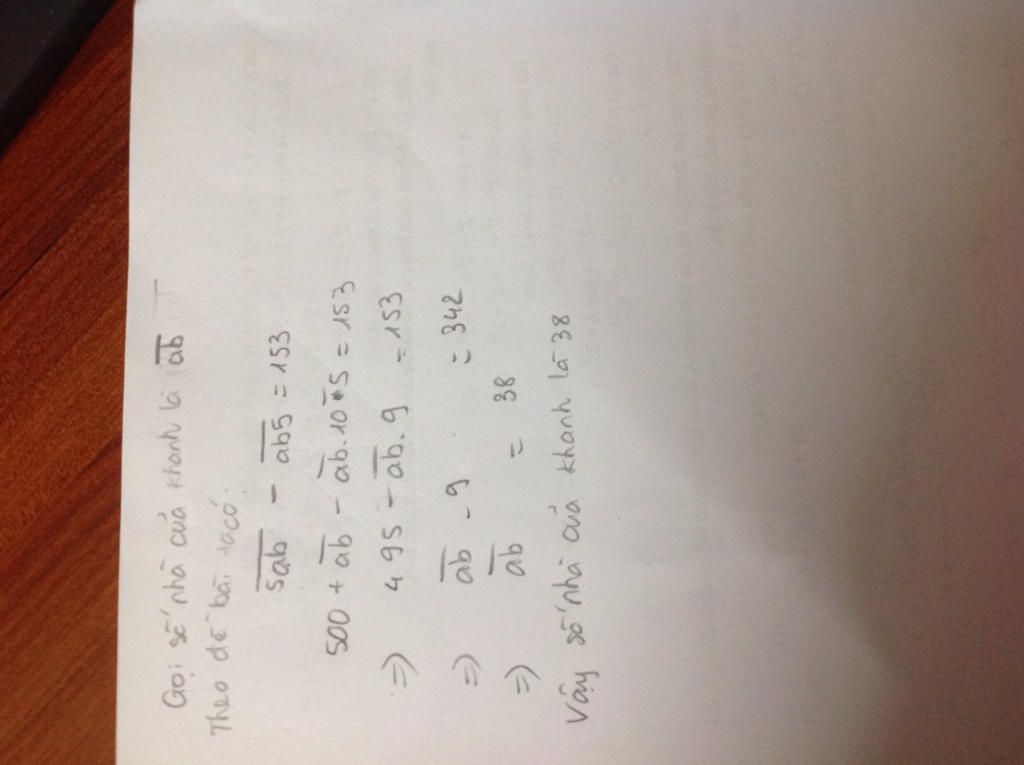 Gọi số nhà của Khanh là ab̅
Theo đề bài ta có:
5ab̅ - ab5̅ = 153
500 + ab̅ - ab̅.10 - 5 = 153
=> 495 - ab̅. 9 = 153
=> ab̅ - 9 = 342
=> ab̅ = 38
Vậy số nhà của Khanh là 38